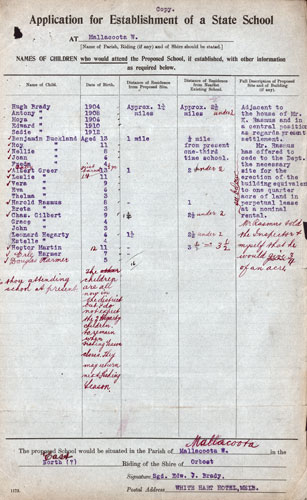 Copy.
Application for Establishment of a State School
AT Mallacoota W.
[Name of Parish, Riding (if any) and of Shire should be stated.]
NAMES OF CHILDREN who would attend the Proposed School, if established, with other information
as required below.
Name. Date of Birth. Distance of Residence from Proposed Site. Distance of Residence from Nearest Existing School. Full Description of Proposed Site and of Building (if any).
Hugh Brady 1904 Approx. 1½ Approx. 2½ Adjacent to
Antony " 1906 miles miles under 2 the house of Mr.
Moya " 1908 E. Rasmus and in
Edward " 1910 a central position
Sadie " 1912 as regards present
Benjamin Buckland Aged 13 1 mile ½ mile settlement.
Roy " 11 from present Mr. Rasmus
Hallie " 8 non-third has offered to
Joan " 4 time school. cede to the Dept.
the necessary
Albert Greer 13 1 2 under 2 site for the
Leslie " 11 erection of the
Vera " 9 building equivalent
Eva " 7 to one quarter
Graham " 3 acre of land in
Harold Rasmus 8 perpetual lease
Greta " 5 at a nominal
Chas. Gilbert 9 1½ 2½ under 2 rental.
Grace " 4 Mr. Rasmus told
John " 3 the Inspector &
Leonard Hegarty 4 1½ 2½ under 2 myself that he
Estelle " 4 would give ¾
Hector Martin 12 11 3 = 3½ of an acre
Harmer 7
Douglas Harmer 7
they attending
school at present
The
children
are all
now in
the district
but I do
not expect
the 2 Hegarty
children
to remain
when
fishing season
closes. They
may return
next fishing
season.
The proposed School would be situated in the Parish of Mallacoota W. in the
Mallacoota
East
North (?) Riding of the Shire of Orbost
Signature Sgd. Edw. J. Brady.
Postal Address WHITE HART HOTEL, MELB.